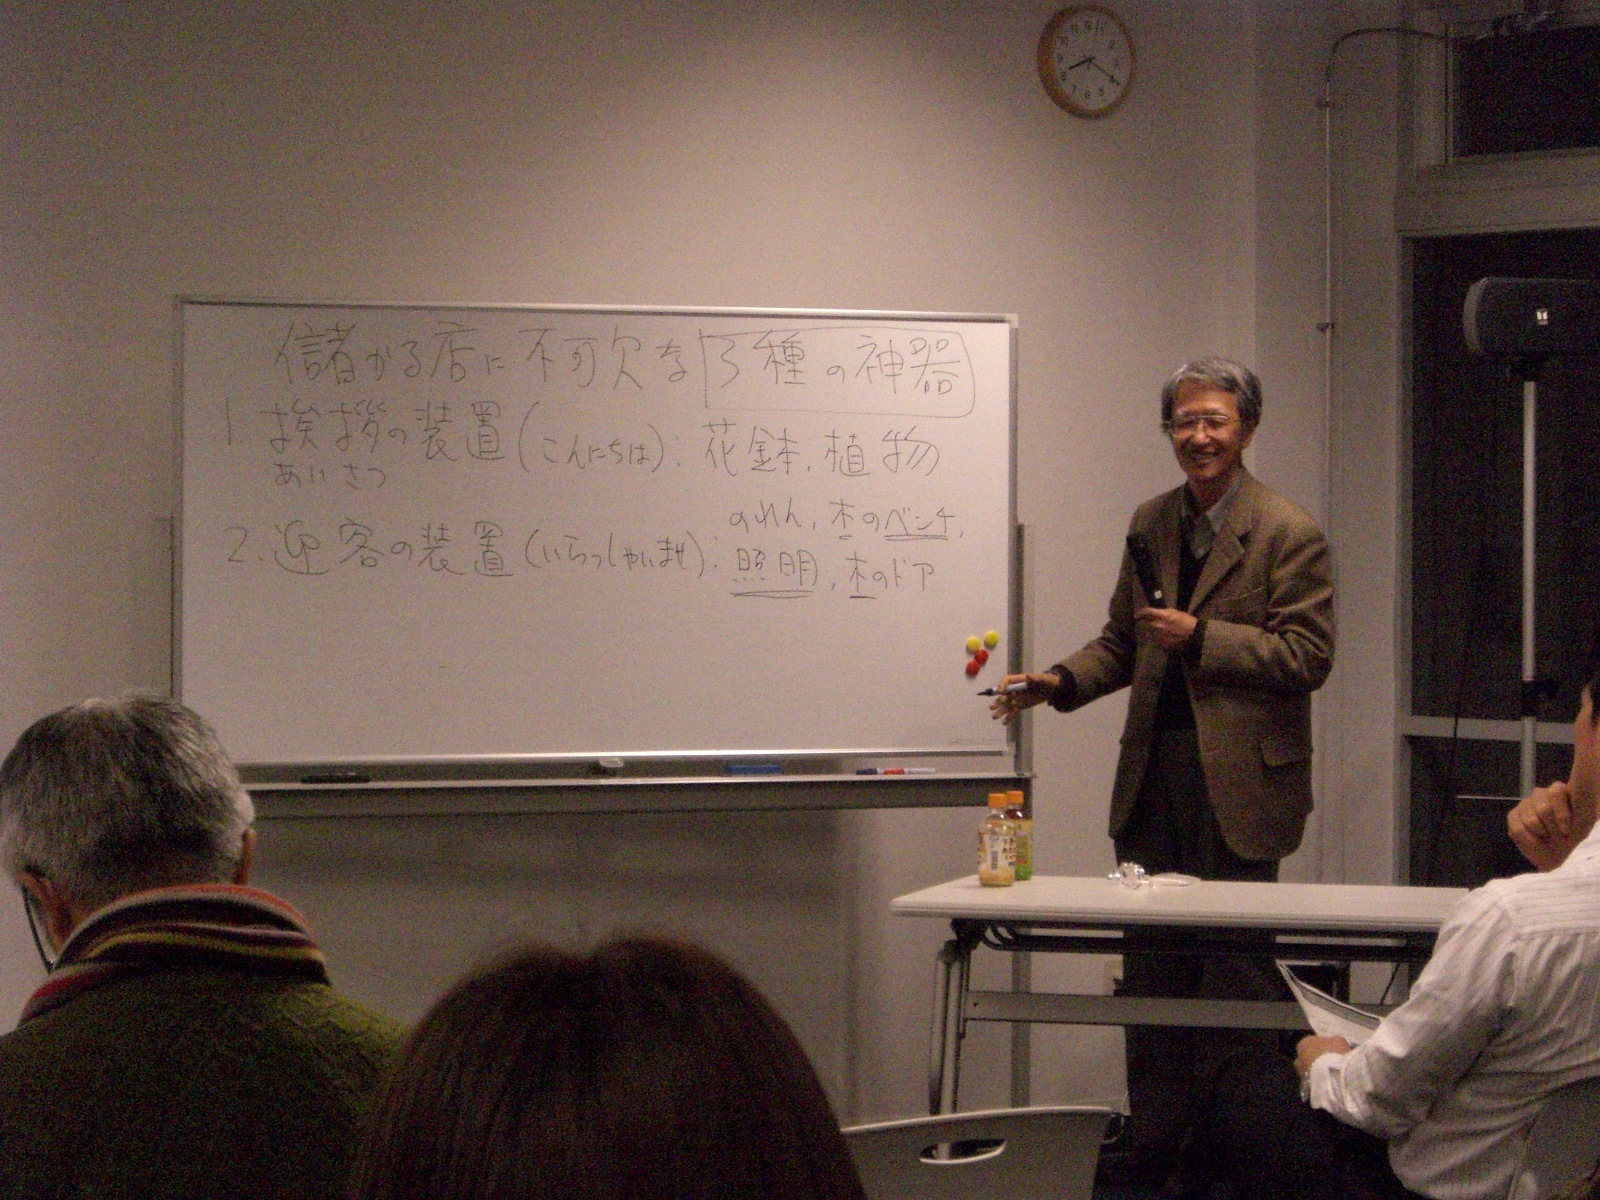 儲かる店に不可欠な「3種の神器」
1. 挨拶の装置(こんにちは):花鉢,植物
あいさつ
のれん,木のベンチ,
2.迎客の装置(いらっしゃいませ):照明,木のドア